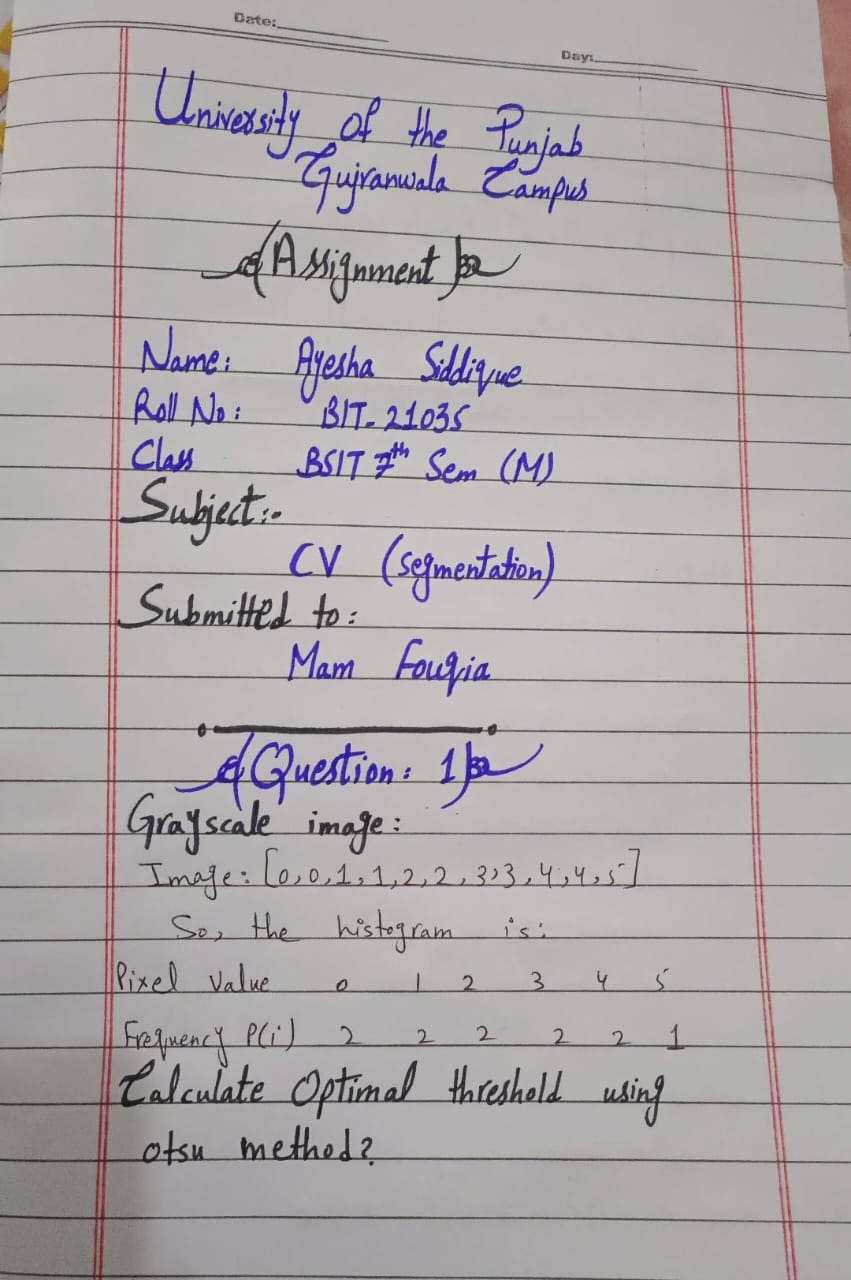 Date:
Day:
University of the Punjab
Gujranwala Campus
Assignment
Name: Ayesha Siddique
Roll No: BIT-21035
Class BSIT 7th Sem (M)
Subject:-
CV (segmentation)
Submitted to:
Mam Fouqia
Question: 1
Grayscale image:
Image: [0,0,1,1,2,2,3,3,4,4,5]
So, the histogram is:
Pixel Value 0 1 2 3 4 5
Frequency P(i) 2 2 2 2 2 1
Calculate Optimal threshold using
otsu method?